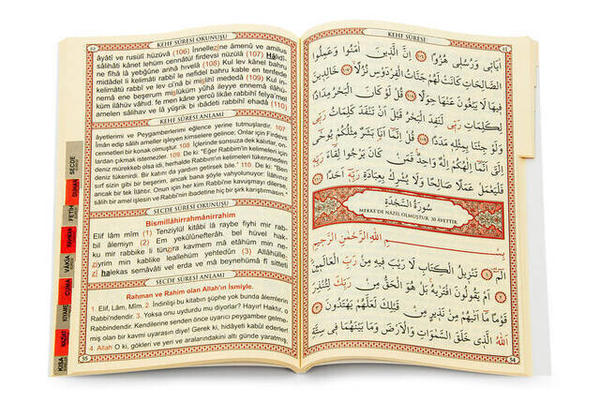 KEHF SÛRESİ OKUNUŞU
âyâtî ve rusulî hüzüvâ (106) İnnellezine âmenû ve amilus
sâlihâti kânet lehüm cennâtül firdevsi nüzülâ (107) Hâlidî-
ne fîhâ lâ yebğûne anhâ hivelâ (108) Kul lev kânel bahru
midâdel li kelimâti rabbî le nefidel bahru kable en tenfede
kelimâtü rabbî ve lev ci'nâ bi mislihî mededâ (109) Kul in-
nemâ ene beşerum mislüküm yûhâ ileyye ennemâ ilâhü-
küm ilâhüv vâhid. fe men kâne yercû likâe rabbihî felya'mel
amelen sâlihav ve lâ yüşrik bi ibâdeti rabbihî ehadâ (110)
KEHF SÛRESİ ANLAMI
âyetlerimi ve Peygamberlerimi eğlence yerine tutmuşlardır. 107
İman edip sâlih ameller işleyen kimselere gelince; Onlar için Firdevs
cennetleri bir konak olmuştur. 108 İçlerinde sonsuza dek kalırlar, on-
lardan çıkmak istemezler. 109 De ki: "Eğer Rabbim'in kelimeleri için
deniz mürekkeb olsa idi, herhalde Rabbim'in kelimeleri tükenmeden
deniz tükenirdi. Bir katını da yardım getirsek bile." 110 De ki: "Ben
sırf sizin gibi bir beşerim, ancak bana şöyle vahyolunuyor: İlâhınız
ancak bir tek ilâhtır. Onun için her kim Rabbi'ne kavuşmayı ümid ederse,
sâlih bir amel işlesin ve Rabbi'nin ibadetine hiç bir şirk karıştırmasın."
SECDE SÛRESİ OKUNUŞU
Bismillâhirrahmânirrahim
Elif lâm mîm (1) Tenzîylül kitâbi lâ raybe fiyhi mir rab-
bil âlemiyn (2) Em yekûlûnefterâh. bel hüvel hak-
ku mir rabbike li tünzira kavmem mâ etâhüm min ne-
ziyrim min kablike leallehüm yehtedûn (3) Allâhülle-
zî halekas semâvâti vel erda ve mâ beynehümâ fî sitteti
SECDE SÛRESİ ANLAMI
Rahman ve Rahim olan Allah'ın İsmiyle.
1. Elif, Lâm, Mîm. 2. İndirilişi bu kitabın şüphe yok bunda âlemlerin
Rabbi'ndendir. 3. Yoksa onu uydurdu mu diyorlar? Hayır; Haktır, o
Rabbi'ndendir. Kendilerine senden önce uyarıcı peygamber gelme-
miş olan bir kavmi uyarasın diye! Gerek ki, hidâyeti kabûl ederler
4. Allah O ki, gökleri ve yeri ve aralarındakini altı günde yarattı
SECDE
DUHAN
FETİH
VAKIA
CUMA
KIYAME
KISA
KEHF SÛRESİ
اٰيَاتٖى وَرُسُلٖى هُزُوًا ﴿١٠٦﴾ اِنَّ الَّذٖينَ اٰمَنُوا وَعَمِلُوا
الصَّالِحَاتِ كَانَتْ لَهُمْ جَنَّاتُ الْفِرْدَوْسِ نُزُلًا ﴿١٠٧﴾ خَالِدٖينَ
فٖيهَا لَا يَبْغُونَ عَنْهَا حِوَلًا ﴿١٠٨﴾ قُلْ لَوْ كَانَ الْبَحْرُ مِدَادًا
لِكَلِمَاتِ رَبّٖى لَنَفِدَ الْبَحْرُ قَبْلَ اَنْ تَنْفَدَ كَلِمَاتُ رَبّٖى
وَلَوْ جِئْنَا بِمِثْلِهٖ مَدَدًا ﴿١٠٩﴾ قُلْ اِنَّمَا اَنَا بَشَرٌ مِثْلُكُمْ يُوحٰى
اِلَىَّ اَنَّمَا اِلٰهُكُمْ اِلٰهٌ وَاحِدٌ فَمَنْ كَانَ يَرْجُوا لِقَاءَ رَبِّهٖ
فَلْيَعْمَلْ عَمَلًا صَالِحًا وَلَا يُشْرِكْ بِعِبَادَةِ رَبِّهٖ اَحَدًا ﴿١١٠﴾
سُورَةُ السَّجْدَةِ
MEKKE'DE NAZİL OLMUŞTUR. 30 AYETTİR.
بِسْمِ اللّٰهِ الرَّحْمٰنِ الرَّحٖيمِ
الٓمٓ ﴿١﴾ تَنْزٖيلُ الْكِتَابِ لَا رَيْبَ فٖيهِ مِنْ رَبِّ الْعَالَمٖينَ
﴿٢﴾ اَمْ يَقُولُونَ افْتَرٰيهُ بَلْ هُوَ الْحَقُّ مِنْ رَبِّكَ لِتُنْذِرَ
قَوْمًا مَا اَتٰيهُمْ مِنْ نَذٖيرٍ مِنْ قَبْلِكَ لَعَلَّهُمْ يَهْتَدُونَ ﴿٣﴾
اَللّٰهُ الَّذٖى خَلَقَ السَّمٰوَاتِ وَالْاَرْضَ وَمَا بَيْنَهُمَا فٖى سِتَّةِ
54